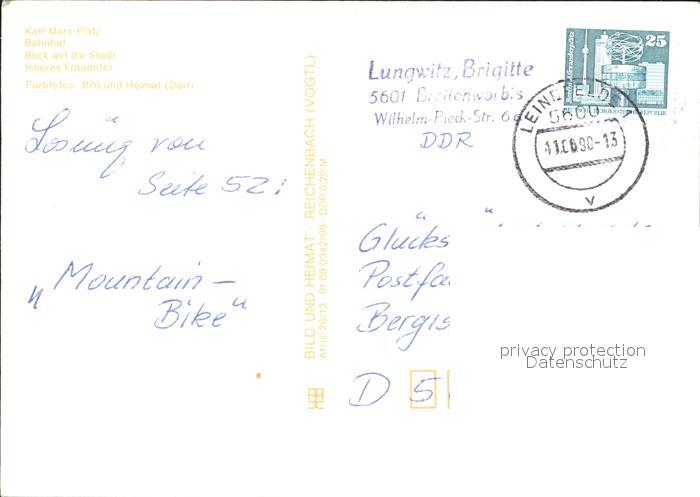 Karl-Marx-Platz
Bahnhof
Blick auf die Stadt
Inneres Frauentor
Farbfotos: Bild und Heimat (Darr)
Losung von
Seite 52:
„Mountain-
Bike"
BILD UND HEIMAT · REICHENBACH (VOGTL)
A1/III/26/13 · 01 09 0342/09 · DDR 0,20 M
Lungwitz, Brigitte
5601 Breitenworbis
Wilhelm-Pieck-Str. 6
DDR
25
DEMOKRATISCHE REPUBLIK
LEINEFELDE 1
5600
90-13
v
Glücks
Postfa
Bergis
D 5
privacy protection
Datenschutz